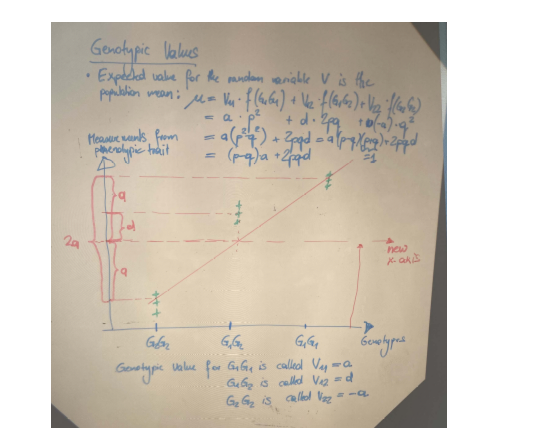 Genotypic Values
• Expected value for the random variable V is the
population mean: μ = V₁₁ · f(G₁G₁) + V₁₂ · f(G₁G₂) + V₂₂ · f(G₂G₂)
= a · p² + d · 2pq + (-a) · q²
= a(p²-q²) + 2pqd = a(p-q)(p+q) + 2pqd
=1
= (p-q)a + 2pqd
Measurements from
phenotypic trait
a
d
2a
a
new
x-axis
G₂G₂ G₁G₂ G₁G₁ Genotypes
Genotypic value for G₁G₁ is called V₁₁ = a
G₁G₂ is called V₁₂ = d
G₂G₂ is called V₂₂ = -a